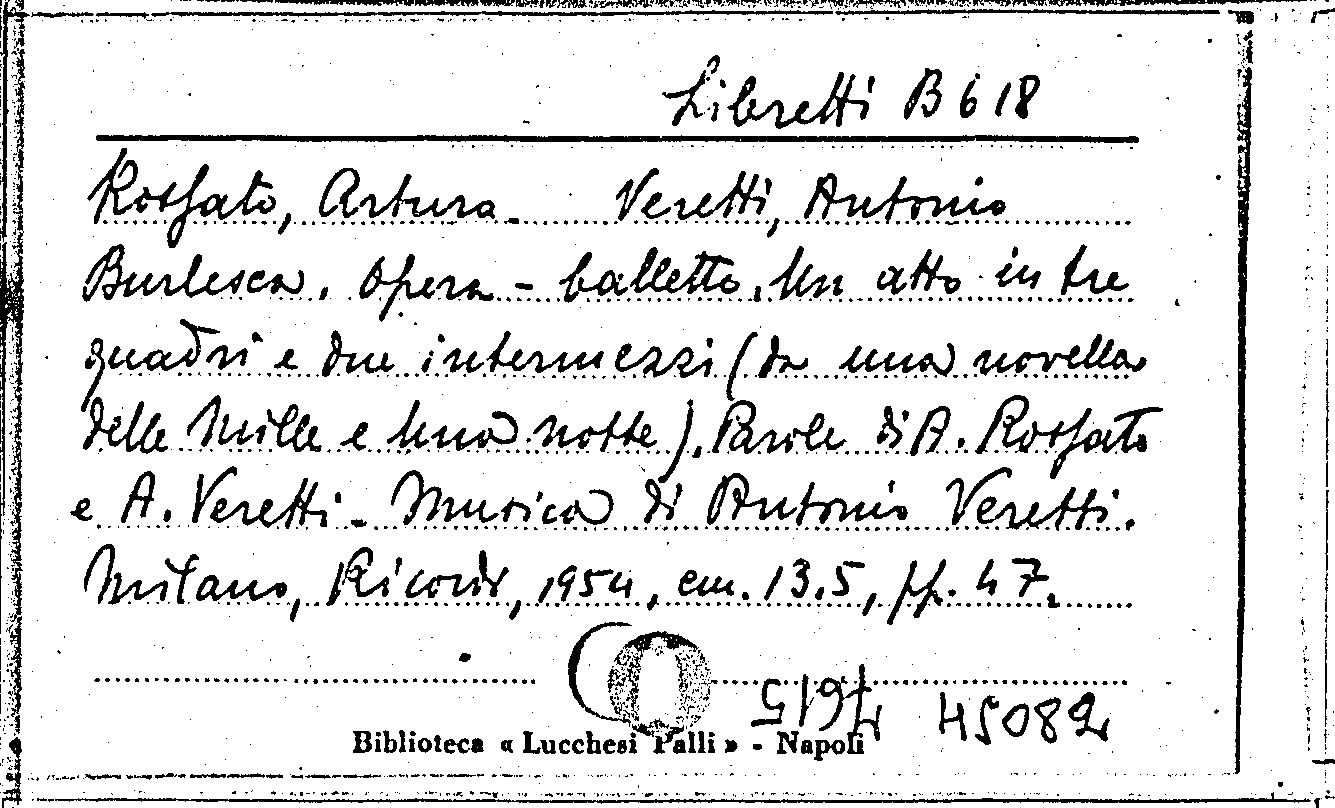 Libretti B 618
Rossato, Arturo. Veretti, Antonio
Burlesca. Opera - balletto. Un atto in tre
quadri e due intermezzi (da una novella
delle Mille e Una notte). Parole di A. Rossato
e A. Veretti. Musica di Antonio Veretti.
Milano, Ricordi, 1954, cm. 13.5, pp. 47.
45082
Biblioteca « Lucchesi Palli » - Napoli